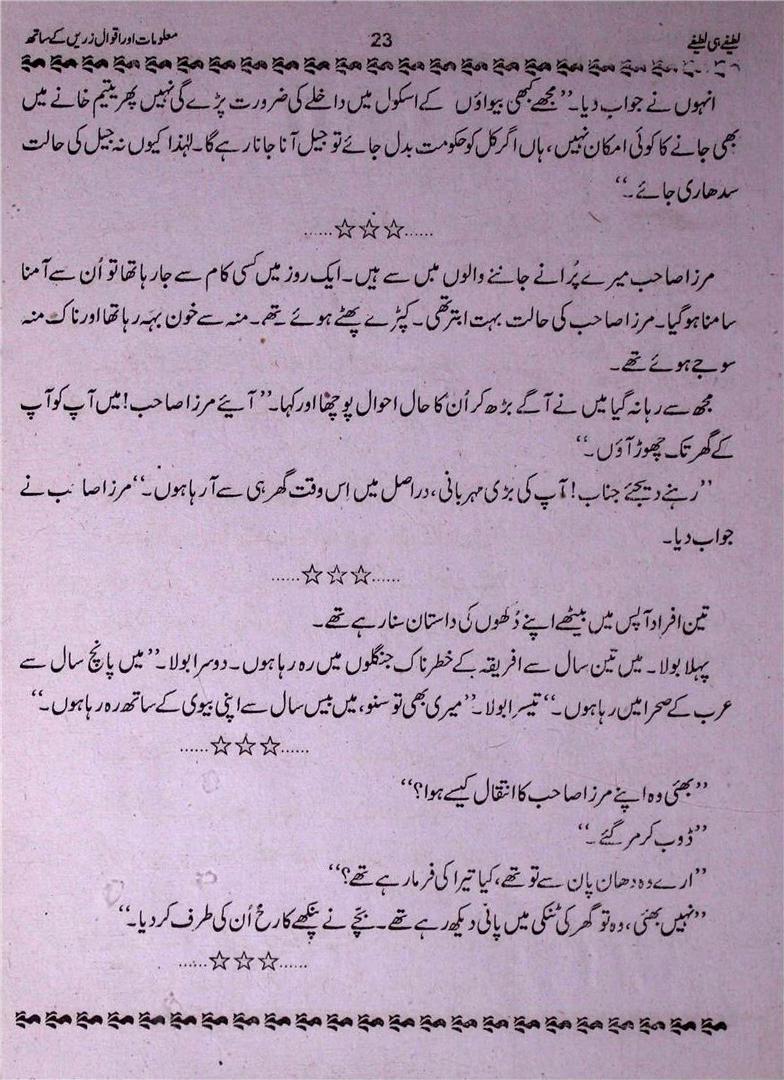 لطیفے ہی لطیفے 23 معلومات اور اقوال زریں کے ساتھ
انہوں نے جواب دیا۔ ’’مجھے کبھی بیواؤں کے اسکول میں داخلے کی ضرورت پڑے گی نہیں پھر یتیم خانے میں
بھی جانے کا کوئی امکان نہیں، ہاں اگر کل کو حکومت بدل جائے تو جیل آنا جانا رہے گا۔ لہٰذا کیوں نہ جیل کی حالت
سدھاری جائے۔‘‘
......☆☆☆......
مرزا صاحب میرے پُرانے جاننے والوں میں سے ہیں۔ ایک روز میں کسی کام سے جا رہا تھا تو اُن سے آمنا
سامنا ہو گیا۔ مرزا صاحب کی حالت بہت ابتر تھی۔ کپڑے پھٹے ہوئے تھے۔ منہ سے خون بہہ رہا تھا اور ناک منہ
سوجے ہوئے تھے۔
مجھ سے رہا نہ گیا میں نے آگے بڑھ کر اُن کا حال احوال پوچھا اور کہا۔ ’’آئیے مرزا صاحب! میں آپ کو آپ
کے گھر تک چھوڑ آؤں۔‘‘
’’رہنے دیجئے جناب! آپ کی بڑی مہربانی، دراصل میں اِس وقت گھر ہی سے آ رہا ہوں۔‘‘ مرزا صاحب نے
جواب دیا۔
......☆☆☆......
تین افراد آپس میں بیٹھے اپنے دُکھوں کی داستان سنا رہے تھے۔
پہلا بولا۔ میں تین سال سے افریقہ کے خطرناک جنگلوں میں رہ رہا ہوں۔ دوسرا بولا۔ ’’میں پانچ سال سے
عرب کے صحرا میں رہا ہوں۔‘‘ تیسرا بولا۔ ’’میری بھی تو سنو، میں بیس سال سے اپنی بیوی کے ساتھ رہ رہا ہوں۔‘‘
......☆☆☆......
’’بھئی وہ اپنے مرزا صاحب کا انتقال کیسے ہوا؟‘‘
’’ڈوب کر مر گئے۔‘‘
’’ارے وہ دھان پان سے تو تھے، کیا تیراکی فرما رہے تھے؟‘‘
’’نہیں بھئی، وہ تو گھر کی ٹنکی میں پانی دیکھ رہے تھے۔ بچّے نے پنکھے کا رخ اُن کی طرف کر دیا۔‘‘
......☆☆☆......